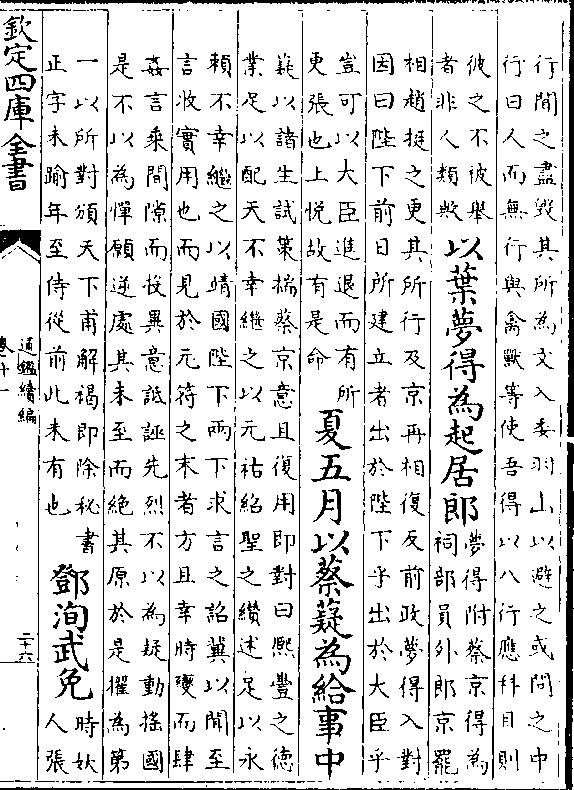 行間之盡毀其所為文入委羽山以避之或問之中
行曰人而無行與禽獸等使吾得以八行應科目則
彼之不被舉
者非人類歟
以葉夢得為起居郎
夢得附蔡京得為
祠部員外郎京罷
相趙挺之更其所行及京再相復反前政夢得入對
因曰陛下前日所建立者出於陛下乎出於大臣乎
豈可以大臣進退而有所
更張也上悅故有是命
夏五月以蔡薿為給事中
薿以諸生試策揣蔡京意且復用即對曰熙豐之德
業足以配天不幸繼之以元祐紹聖之纘述足以永
賴不幸繼之以靖國陛下兩下求言之詔冀以聞至
言收實用也而見於元符之末者方且幸時變而肆
姦言乘間隙而投異意詆誣先烈不以為疑動搖國
是不以為憚願逆處其未至而絶其原於是擢為第
一以所對頒天下甫解褐即除秘書
正字未踰年至侍從前此未有也
鄧洵武免
時妖
人張
欽定四庫全書
通鑑續編
卷十一
二十六